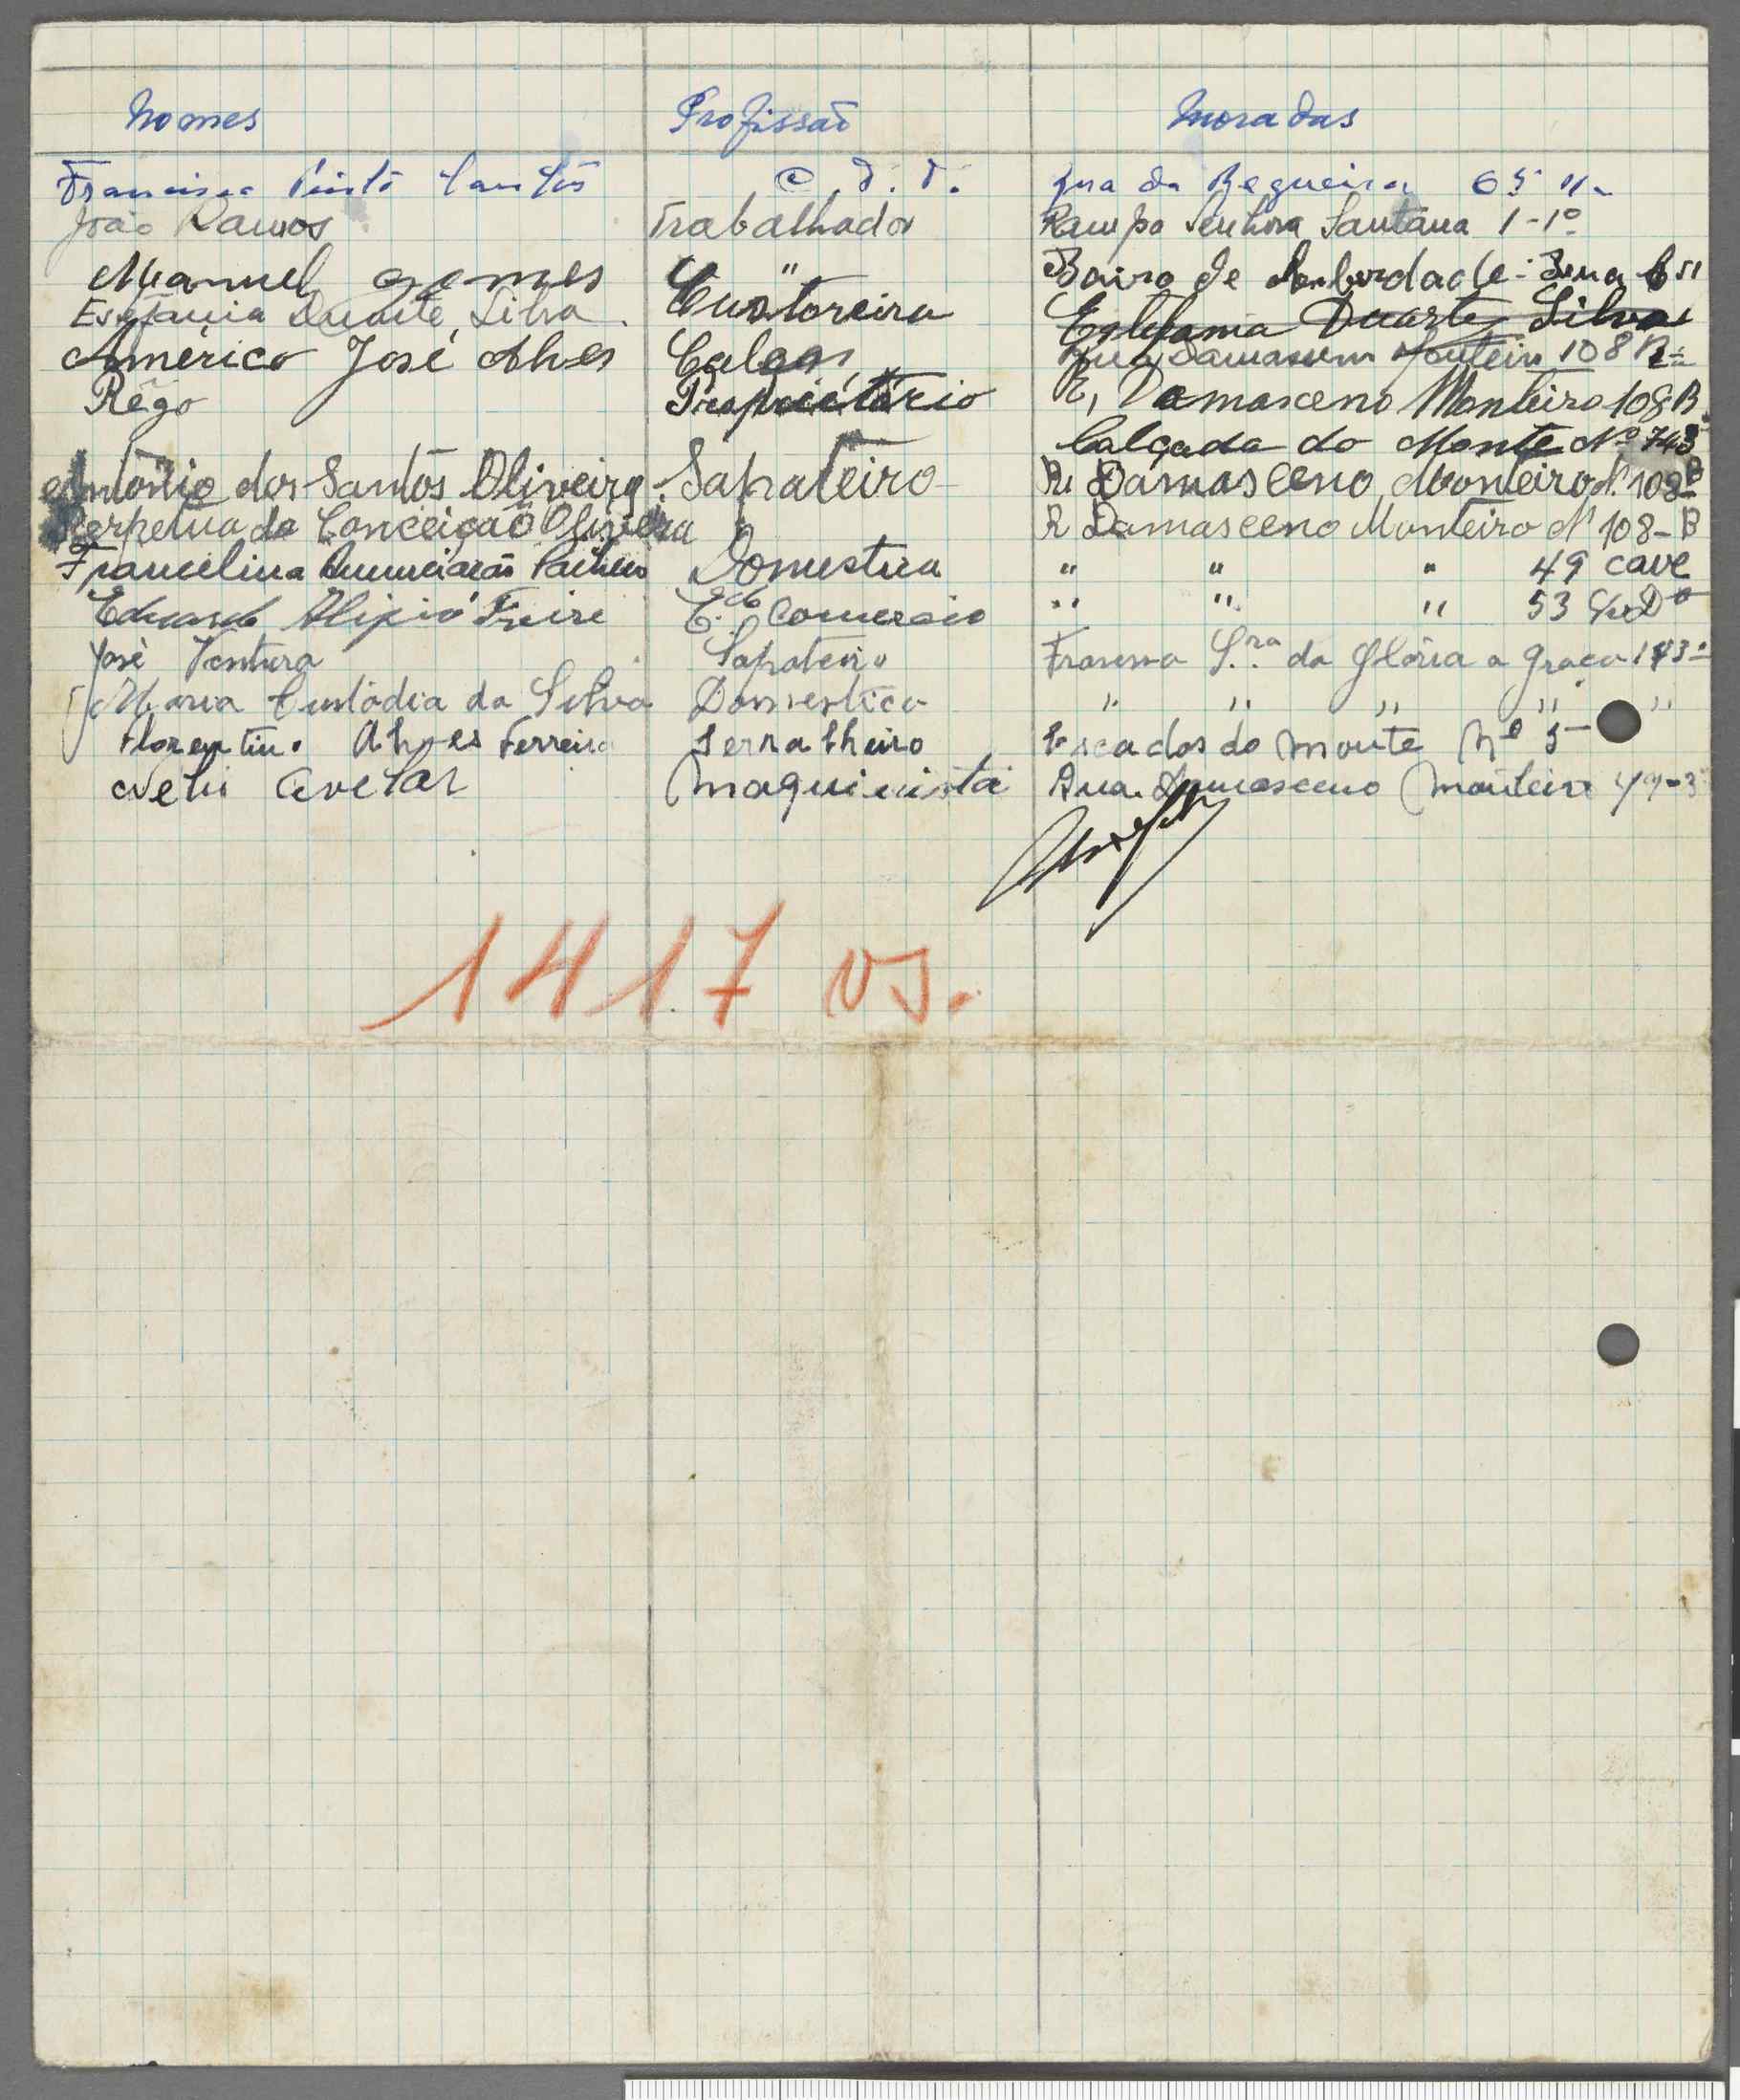 Nomes Profissão Moradas
Francisca Pinto Santos C. T. T. Rua da Regueira 65
João Ramos Trabalhador Senhora Santana 1-1º
Manuel gomes " Bairo de
Estefania Duarte Silva Custoreira Estefania Duarte Silva
Américo José Alves Monteiro 108 B
Rêgo Propriétário R, Damasceno Monteiro 108 B
Calçada do Monte Nº 743
António dos Santos Oliveira Sapateiro R. Damasceno Monteiro N. 108 B
Perpetua da Conceição Oliviera R Damasceno Monteiro Nº 108-B
Francelina Anunciação Domestica " " " 49 cave
Eduardo Alipio Freire E. do Comercio " " " 53
José Ventura Sapateiro Travessa Sra. da Glória a Graça
Maria Custódia da Silva Domestica " " " " "
Florentino Alves Ferreira Serralheiro Escadas do Monte Nº 5
Avelar Maquinista Rua Damasceno Monteiro
1417 vs.